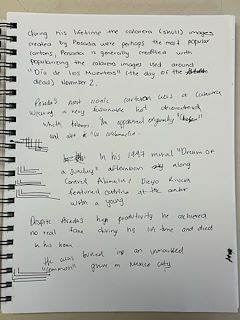 during his lifetime the calavera (skull) images
created by Posada were perhaps the most popular
cartoons, Posada is generally credited with
popularizing the calavera images used around
"Dia de Los Muertos" (the day of the
dead) November 2.
Posada's most iconic cartoon was a calavera
wearing a very fashionable hat
which
and
In his 1947 mural "Dream of
a Sunday" afternoon along
Central Alameda: Diego Rivera
featured catrina at the center
with a young
Despite Posada's high productivity he achieved
no real fame during his life time and died
in his home.
He was buried in an unmarked
"common" grave in Mexico city